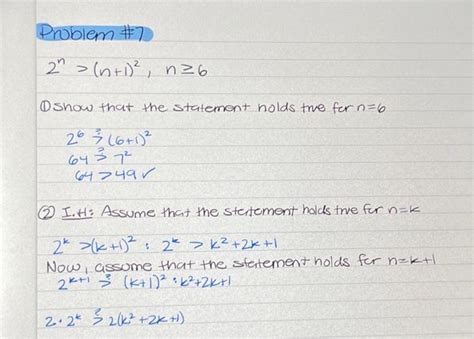 Problem #7
2ⁿ > (n+1)², n ≥ 6
① Show that the statement holds true for n=6
2⁶ ?> (6+1)²
64 ?> 7²
64 > 49 ✓
② I.H: Assume that the statement holds true for n=k
2ᵏ > (k+1)² : 2ᵏ > k²+2k+1
Now, assume that the statement holds for n=k+1
2ᵏ⁺¹ ?> (k+1)² : k²+2k+1
2·2ᵏ ?> 2(k²+2k+1)